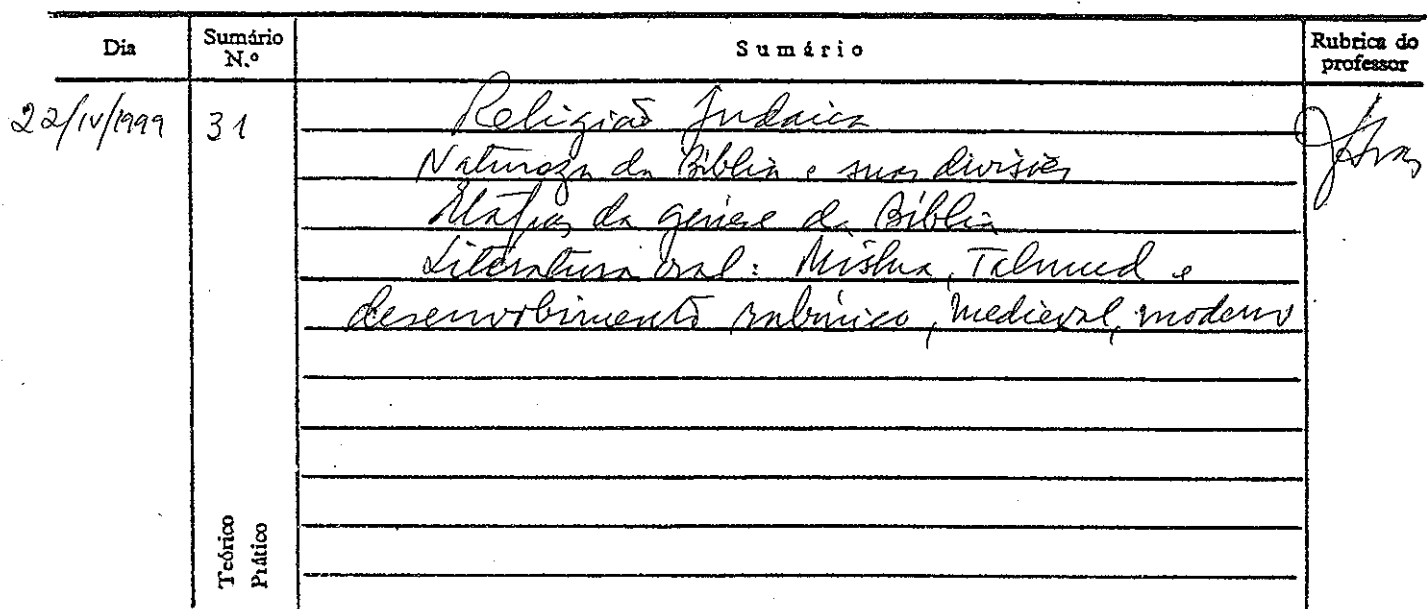 Dia Sumário N.º Sumário Rubrica do professor
22/IV/1999 31 Religião Judaica
Natureza da Bíblia e suas divisões
Etapas da génese da Bíblia
Literatura oral: Mishna, Talmud e
desenvolvimento rabínico, medieval, moderno
Teórico
Prático